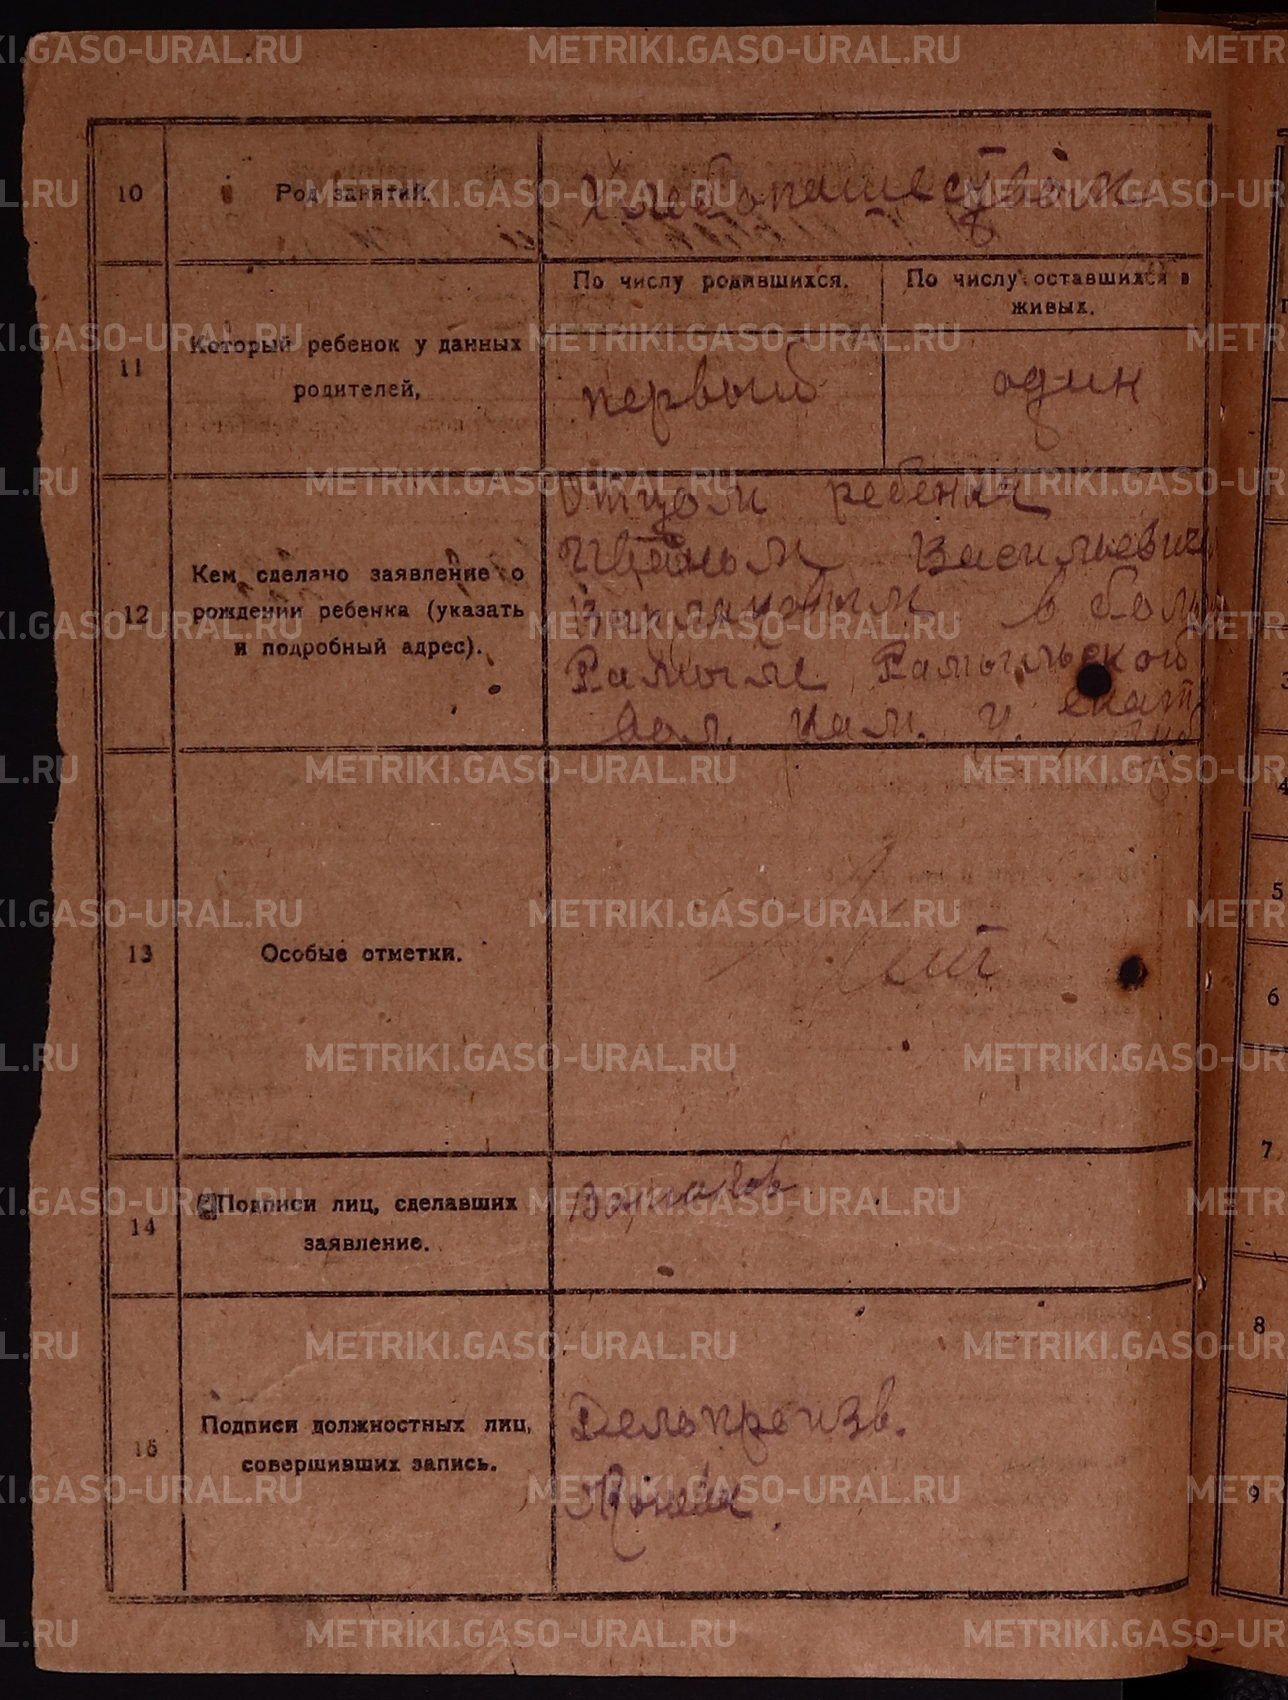 METRIKI.GASO-URAL.RU
10
Род занятий.
11
Который ребенок у данных
родителей,
По числу родившихся.
По числу оставшихся в
живых.
первый
один
12
Кем сделано заявление о
рождении ребенка (указать
и подробный адрес).
Отцом ребенка
Иваном Васильевич
в бол
Рамыле Рамыльского
вол. Кам. у. екат
губ
13
Особые отметки.
Нет
14
Подписи лиц, сделавших
заявление.
15
Подписи должностных лиц,
совершивших запись.
Делопроизв.
3
4
5
6
7
8
9